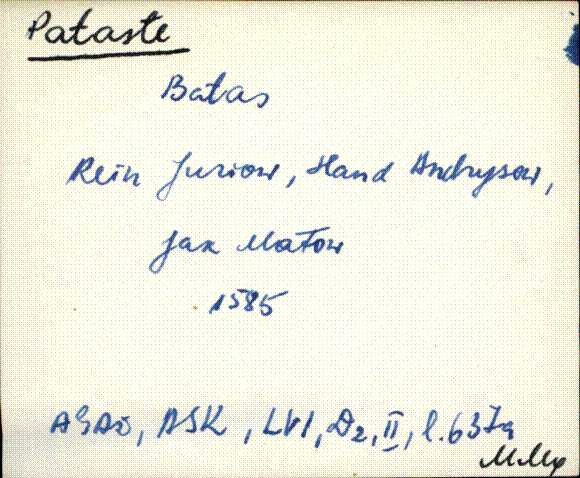 Pataste
Batas
Rein Juriow, Hand Andrysow,
Jax Matow
1585
AGAD, ASK, LVI, D2, II, l. 637a
MMy